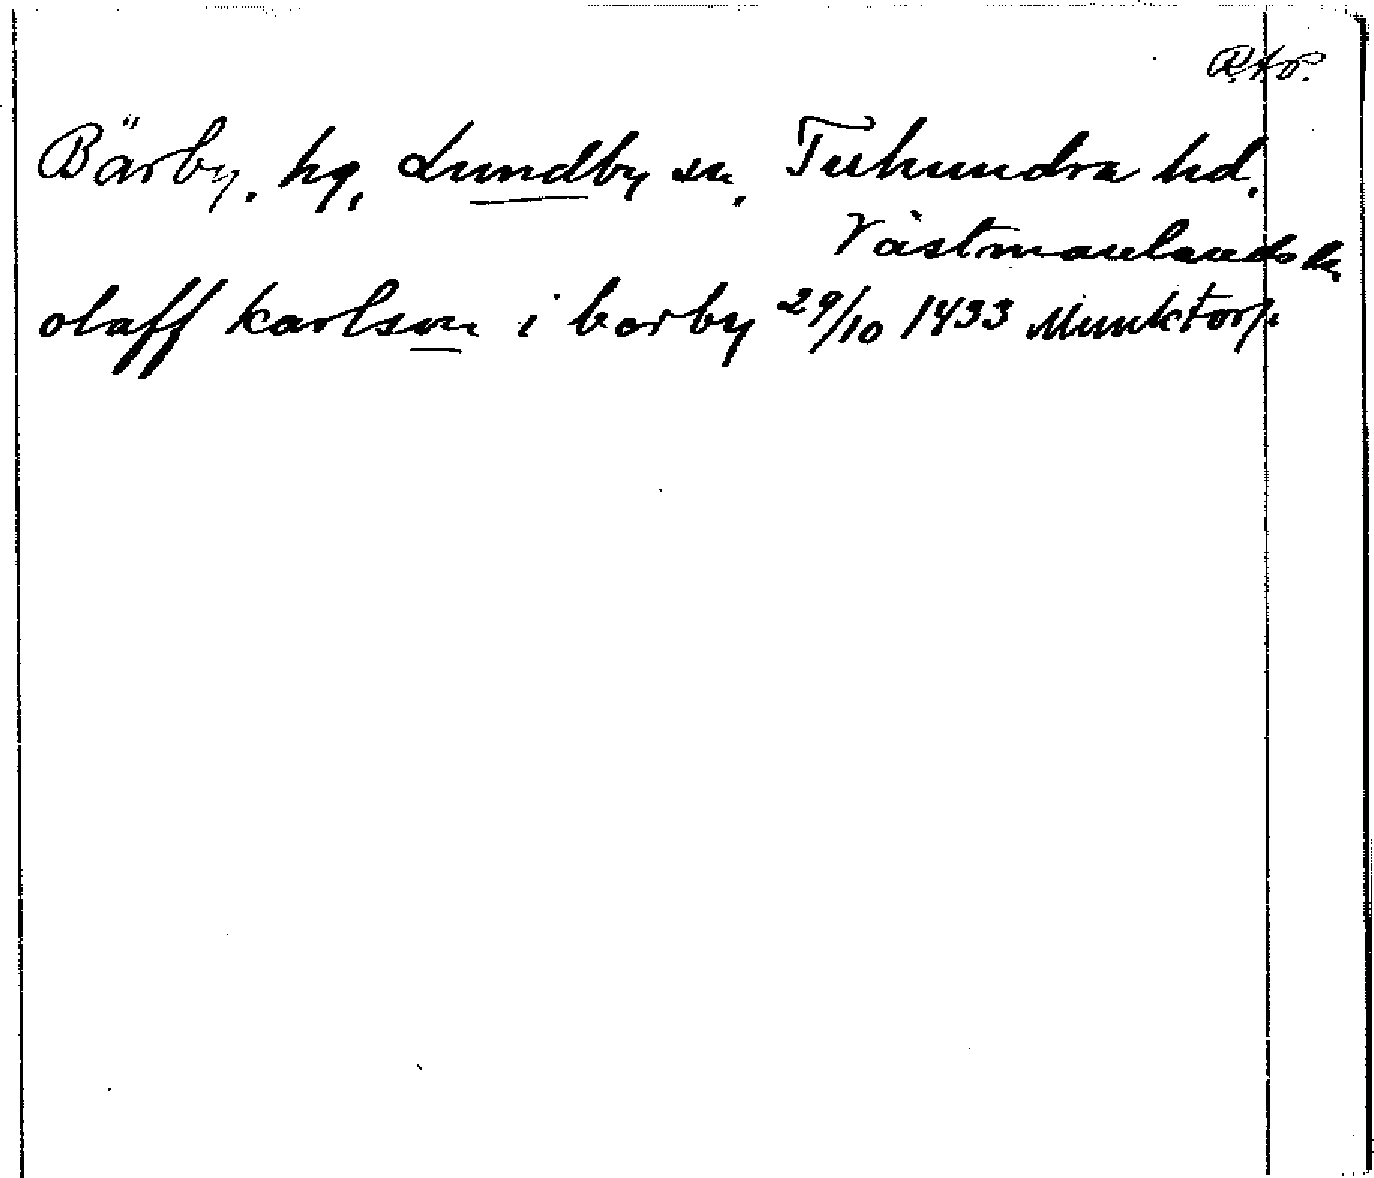 RAP.
Bärby, hg, Lundby sn, Tuhundra hd,
Västmanlands l.
olaff karlson i barby 29/10 1433 Munktorp.